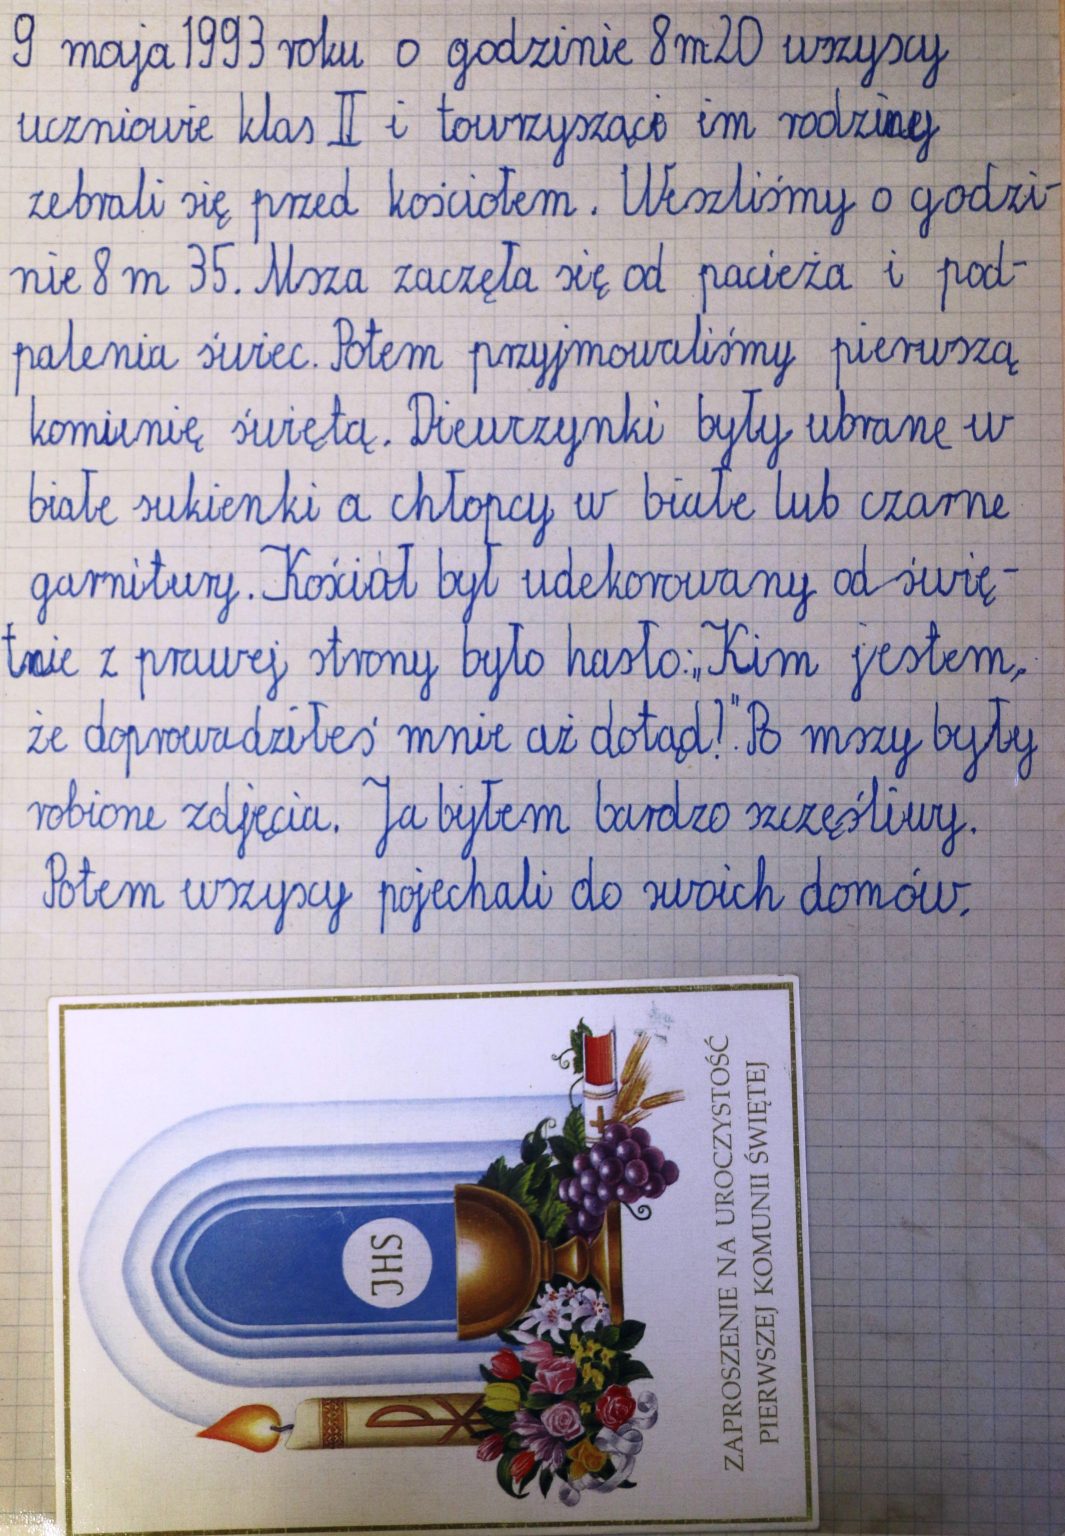 9 maja 1993 roku o godzinie 8 m 20 wszyscy
uczniowie klas II i towrzyszące im rodziny
zebrali się przed kościołem. Weszliśmy o godzi-
nie 8 m 35. Msza zaczęła się od pacieża i pod-
palenia świec. Potem przyjmowaliśmy pierwszą
komunię świętą. Diewczynki były ubrane w
białe sukienki a chłopcy w białe lub czarne
garnitury. Kościół był udekorowany od świę-
tnie z prawej strony było hasło: „Kim jestem,
że doprowadziłeś mnie aż dotąd!". Po mszy były
robione zdjęcia. Ja byłem bardzo szczęśliwy.
Potem wszyscy pojechali do swoich domów.
JHS
ZAPROSZENIE NA UROCZYSTOŚĆ
PIERWSZEJ KOMUNII ŚWIĘTEJ